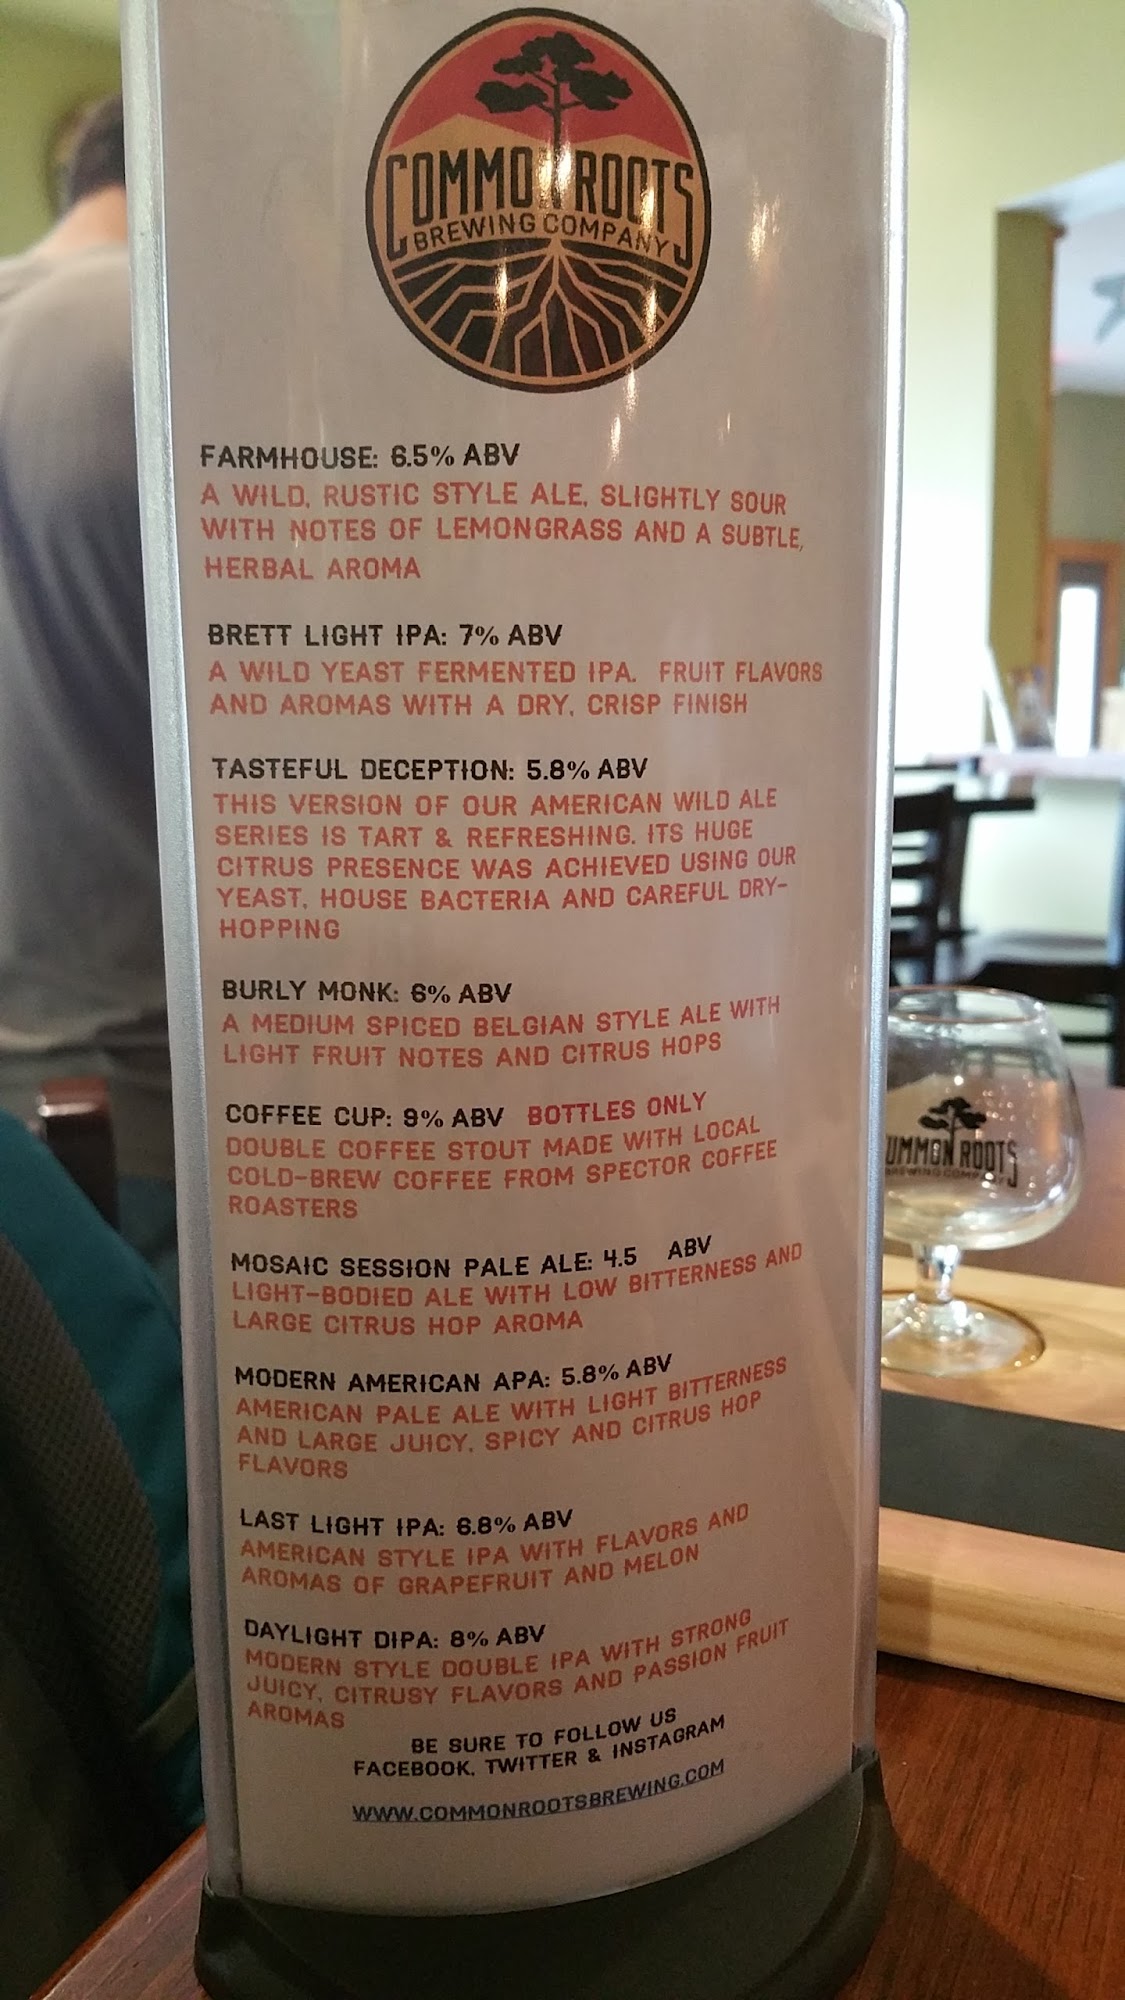 COMMON ROOTS
BREWING COMPANY
FARMHOUSE: 6.5% ABV
A WILD, RUSTIC STYLE ALE, SLIGHTLY SOUR
WITH NOTES OF LEMONGRASS AND A SUBTLE,
HERBAL AROMA
BRETT LIGHT IPA: 7% ABV
A WILD YEAST FERMENTED IPA. FRUIT FLAVORS
AND AROMAS WITH A DRY, CRISP FINISH
TASTEFUL DECEPTION: 5.8% ABV
THIS VERSION OF OUR AMERICAN WILD ALE
SERIES IS TART & REFRESHING. ITS HUGE
CITRUS PRESENCE WAS ACHIEVED USING OUR
YEAST, HOUSE BACTERIA AND CAREFUL DRY-
HOPPING
BURLY MONK: 6% ABV
A MEDIUM SPICED BELGIAN STYLE ALE WITH
LIGHT FRUIT NOTES AND CITRUS HOPS
COFFEE CUP: 9% ABV BOTTLES ONLY
DOUBLE COFFEE STOUT MADE WITH LOCAL
COLD-BREW COFFEE FROM SPECTOR COFFEE
ROASTERS
MOSAIC SESSION PALE ALE: 4.5 ABV
LIGHT-BODIED ALE WITH LOW BITTERNESS AND
LARGE CITRUS HOP AROMA
MODERN AMERICAN APA: 5.8% ABV
AMERICAN PALE ALE WITH LIGHT BITTERNESS
AND LARGE JUICY, SPICY AND CITRUS HOP
FLAVORS
LAST LIGHT IPA: 6.8% ABV
AMERICAN STYLE IPA WITH FLAVORS AND
AROMAS OF GRAPEFRUIT AND MELON
DAYLIGHT DIPA: 8% ABV
MODERN STYLE DOUBLE IPA WITH STRONG
JUICY, CITRUSY FLAVORS AND PASSION FRUIT
AROMAS
BE SURE TO FOLLOW US
FACEBOOK, TWITTER & INSTAGRAM
WWW.COMMONROOTSBREWING.COM
OMMON ROOTS
BREWING COMPANY